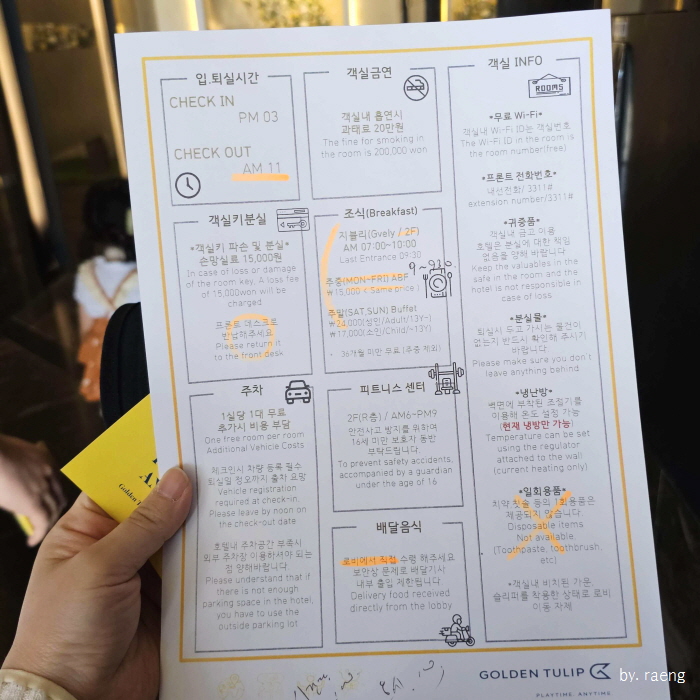 입.퇴실시간
CHECK IN
PM 03
CHECK OUT
AM 11
객실금연
객실내 흡연시
과태료 20만원
The fine for smoking in
the room is 200,000 won
객실키분실
*객실키 파손 및 분실*
손망실료 15,000원
In case of loss or damage
of the room key, A loss fee
of 15,000won will be
charged
프론트 데스크로
반납해주세요
Please return it
to the front desk
조식(Breakfast)
지블리(Gvely / 2F)
AM 07:00~10:00
Last Entrance 09:30
9~930.
주중(MON-FRI) ABF
₩15,000 ( Same price )
주말(SAT.SUN) Buffet
₩24,000(성인/Adult/13Y~)
₩17,000(소인/Child/~13Y)
· 36개월 미만 무료 (주중 제외)
주차
1실당 1대 무료
추가시 비용 부담
One free room per room
Additional Vehicle Costs
체크인시 차량 등록 필수
퇴실일 정오까지 출차 요망
Vehicle registration
required at check-in.
Please leave by noon on
the check-out date
호텔내 주차공간 부족시
외부 주차장 이용하셔야 되는
점 양해바랍니다.
Please understand that if
there is not enough
parking space in the hotel,
you have to use the
outside parking lot
피트니스 센터
2F(R층) / AM6~PM9
안전사고 방지를 위하여
16세 미만 보호자 동반
부탁드립니다.
To prevent safety accidents,
accompanied by a guardian
under the age of 16
배달음식
로비에서 직접 수령 해주세요
보안상 문제로 배달기사
내부 출입 제한됩니다.
Delivery food received
directly from the lobby
객실 INFO
ROOMS
*무료 Wi-Fi*
객실내 Wi-Fi ID는 객실번호
The Wi-Fi ID in the room is
the room number(free)
*프론트 전화번호*
내선전화/ 3311#
extension number/3311#
*귀중품*
객실내 금고 이용
호텔은 분실에 대한 책임
없음을 양해 바랍니다
Keep the valuables in the
safe in the room and the
hotel is not responsible in
case of loss
*분실물*
퇴실시 두고 가시는 물건이
없는지 반드시 확인해 주시기
바랍니다.
Please make sure you don't
leave anything behind
*냉난방*
벽면에 부착된 조절기를
이용해 온도 설정 가능
(현재 냉방만 가능)
Temperature can be set
using the regulator
attached to the wall
(current heating only)
*일회용품*
치약 칫솔 등의 1회용품은
제공되지 않습니다.
Disposable items
Not available.
(Toothpaste, toothbrush,
etc)
*객실내 비치된 가운,
슬리퍼를 착용한 상태로 로비
이동 자제
GOLDEN TULIP
PLAYTIME. ANYTIME.
by. raeng